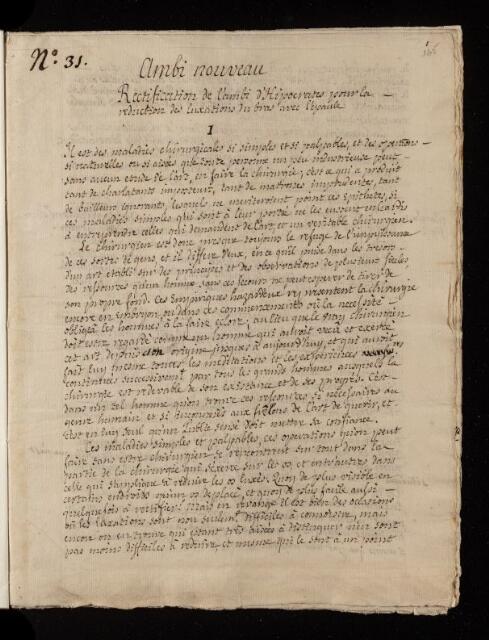 N.º 31.
Ambi nouveau
Rectification de l'ambi d'Hipocrates pour la
reduction des luxations du bras avec l'epaule
I
Il est des maladies chirurgicales si simples et si palpables, et des operations
si naturelles ou si aisées que toute personne un peu industrieuse peut
sans aucun etude de l'art, en faire la chirurgie; c'est ce qui a produit
tant de charlatants imposteurs, tant de matrones imprudentes, tant
de bailleuls ignorants, lesquels ne meriteroient point ces epithetes, si
ces maladies simples qui sont à leur portée ne les eussent enhardis
à entreprendre celles qui demandent de l'art, et un veritable chirurgien.
Le chirurgien est donc presque toujours le refuge de l'impuissance
de ces sortes de gens, et il differe d'eux, en ce qu'il puise dans les tresors
d'un art etabli sur des principes et des observations de plusieurs siecles
des resources qu'un homme sans ces secours ne peut esperer de tirer de
son propre fond. Ces empiriques hazardeux representent la chirurgie
encore en embryon, ou dans ces commencements où la necessité
obligea les hommes à la faire eclore; au lieu que le vray chirurgien
doit estre regardé comme un homme qui auroit vecu et exercé
cet art depuis son origine jusques à aujourd'huy, et qui auroit
fait luy mesme toutes les meditations et les experiences
continuées successivement par tous les grands hommes auxquels la
chirurgie est redevable de son existence et de ses progrès. C'est
dans un tel homme qu'on trouve ces resources si necessaires au
genre humain et si inconnues aux de l'art de guerir, et
c'est en luy seul qu'un malade sensé doit mettre sa confiance.
Les maladies simples et palpables, ces operations qu'on peut
faire sans estre chirurgien se rencontrent sur tout dans la
partie de la chirurgie qui s'exerce sur les os, et entr'autres dans
celle qui s'applique à reduire les os luxés. Quoy de plus visible en
certains endroits qu'un os deplacé, et quoy de plus facile aussi
quelquefois à rectifier? Mais en revange il est bien des occasions
où les luxations sont non seulement difficiles à connoitre, mais
encore on en trouve qui etant très aisées à distinguer n'en sont
pas moins difficiles à reduire, et mesme qui le sont à un point